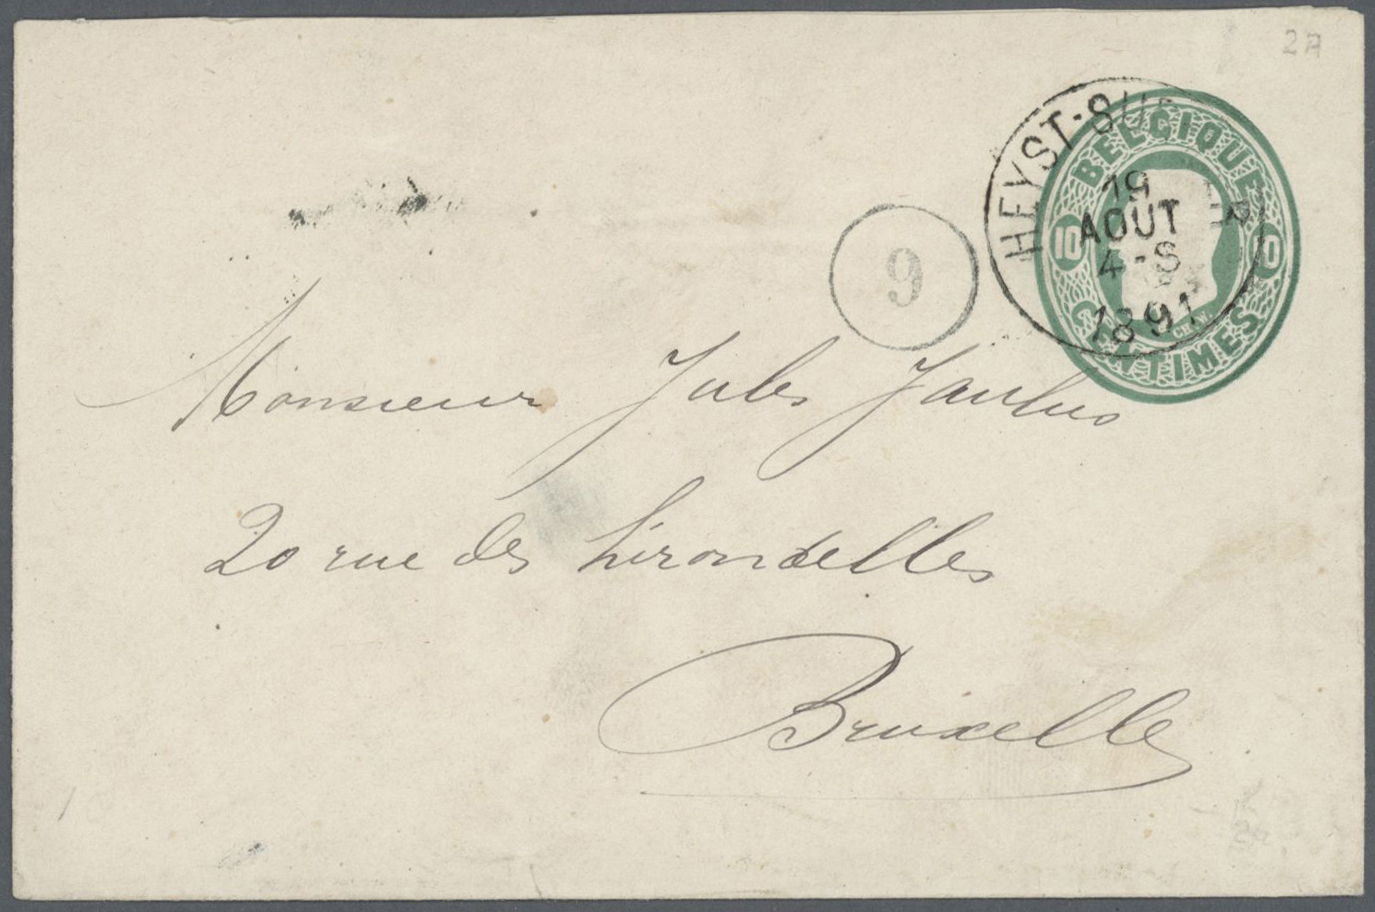 2A
HEYST-SUR-MER
19
AOUT
4-S
1891
BELGIQUE
10 10
CENTIMES
9
Monsieur Jules
20 rue des hirondelles
Bruxelles